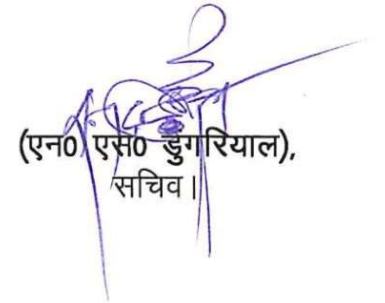 (एन0 एस0 डुंगरियाल),
सचिव।